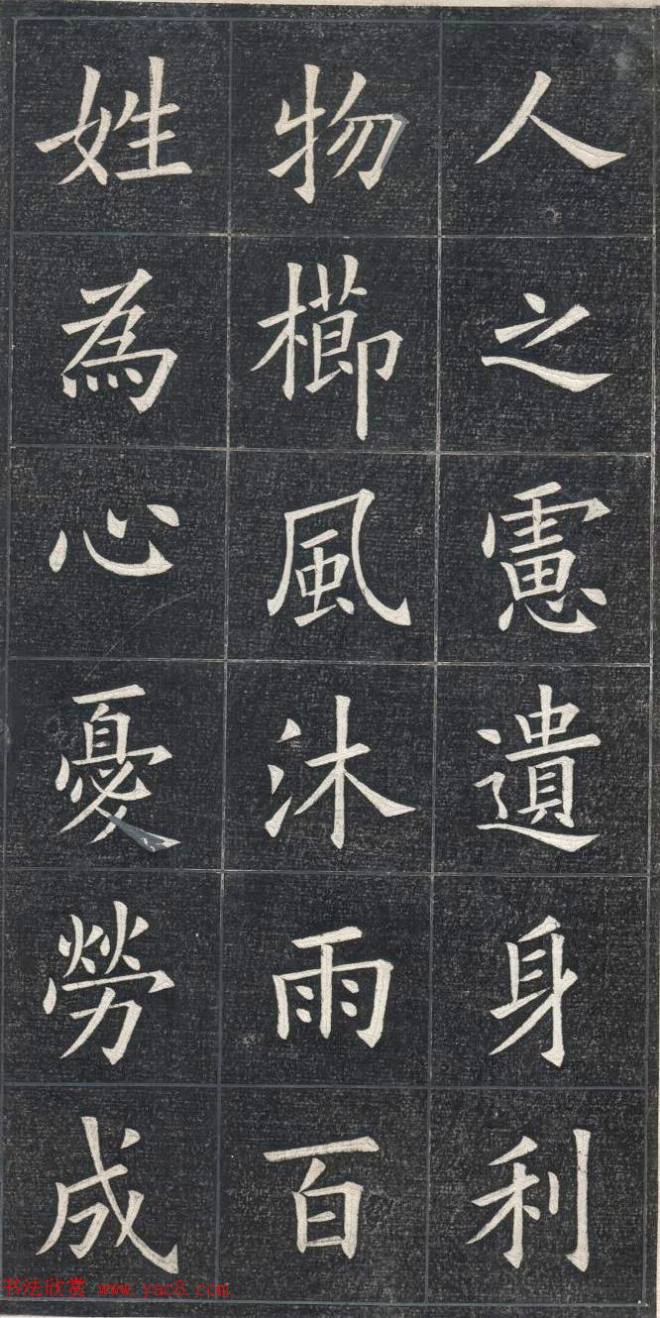 人之慮遺身利
物櫛風沐雨百
姓為心憂勞成
书法欣赏 www.yac8.com